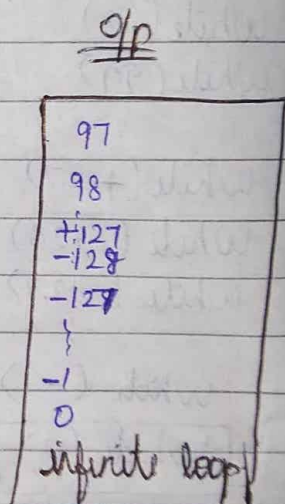 O/P
97
98
+127
-128
-127
-1
0
infinite loop